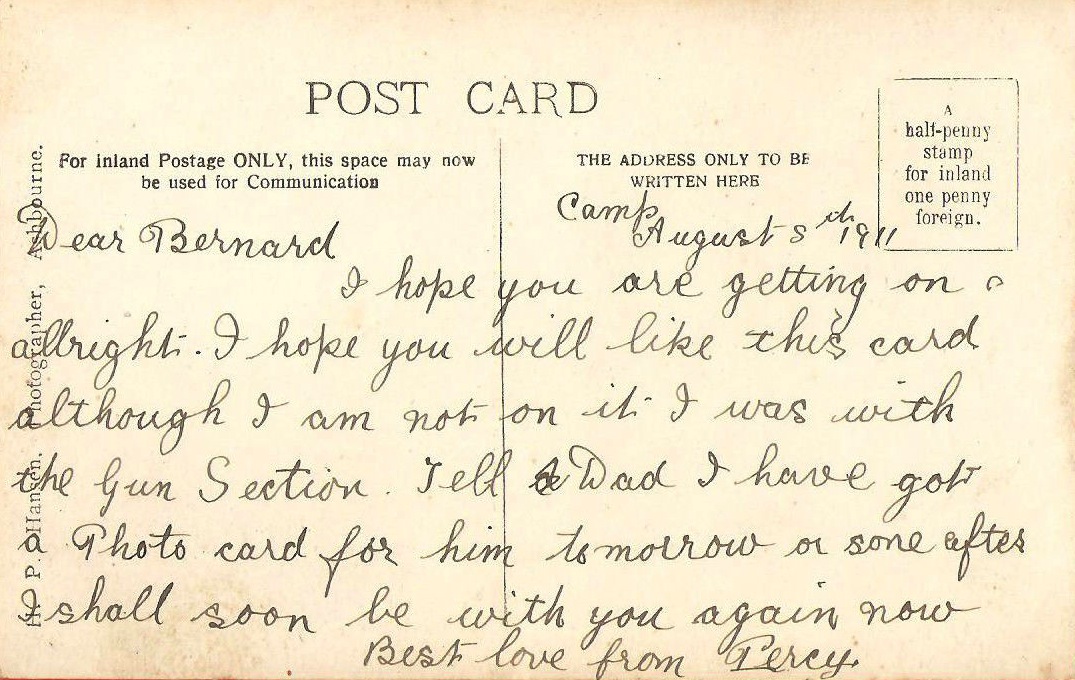 POST CARD
A
half-penny
stamp
for inland
one penny
foreign.
For inland Postage ONLY, this space may now
be used for Communication
THE ADDRESS ONLY TO BE
WRITTEN HERE
H. P. Hansen. Photographer, Ashbourne.
Camp
August 5th 1911
Dear Bernard
I hope you are getting on
allright. I hope you will like this card
although I am not on it I was with
the Gun Section. Tell Dad I have got
a Photo card for him tomorrow or sone after
I shall soon be with you again now
Best love from Percy.